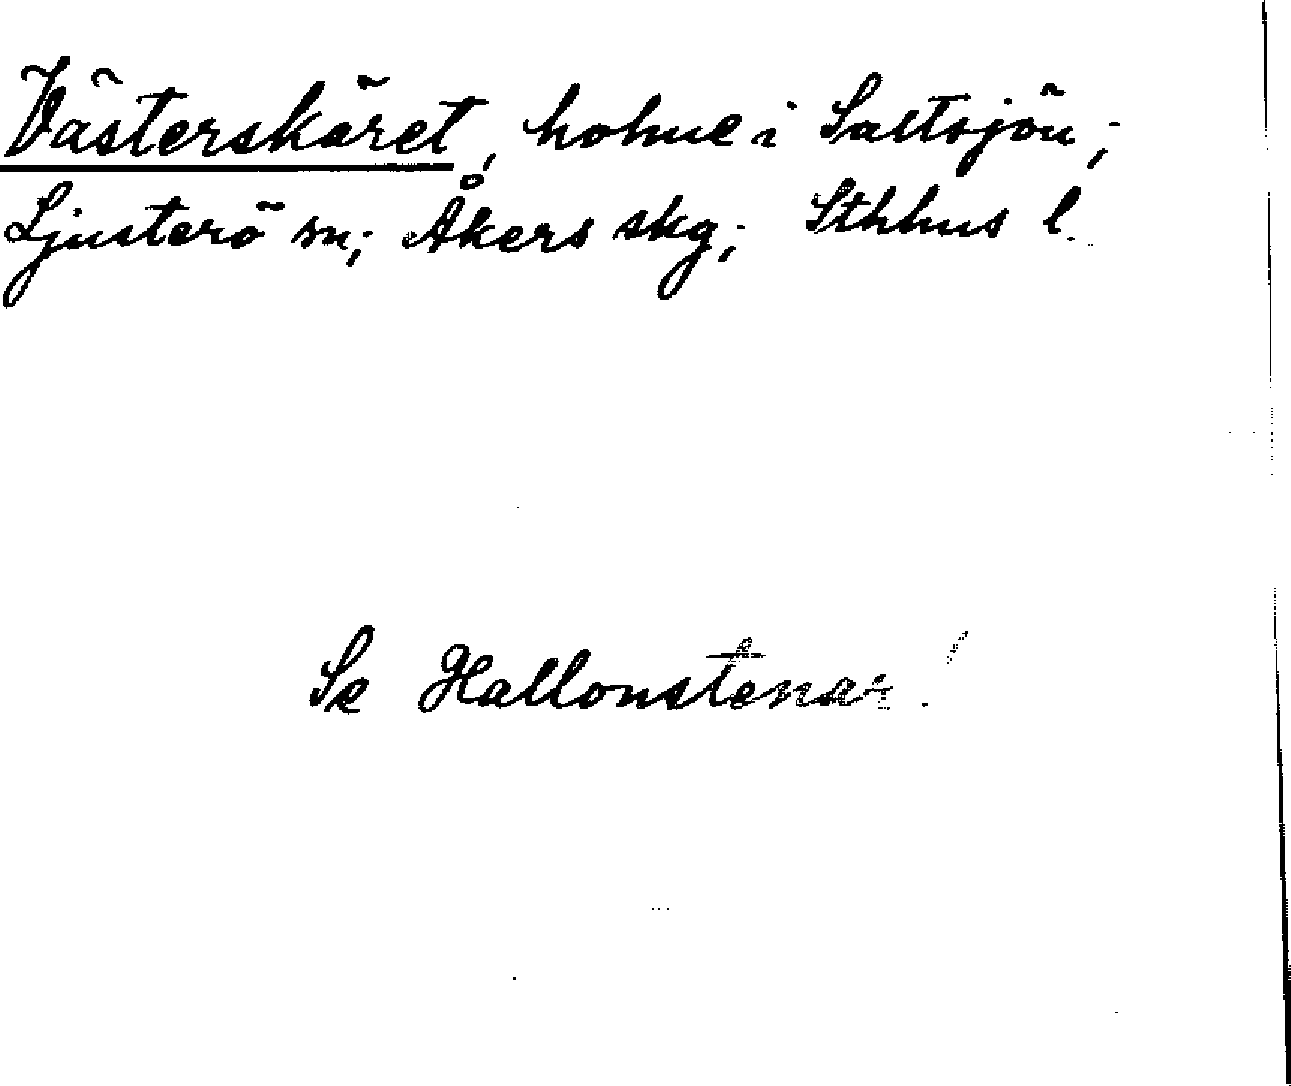 Västerskäret, holme i Saltsjön;
Ljusterö sn; Åkers skg; Sthlms l.
Se Hallonstenar!